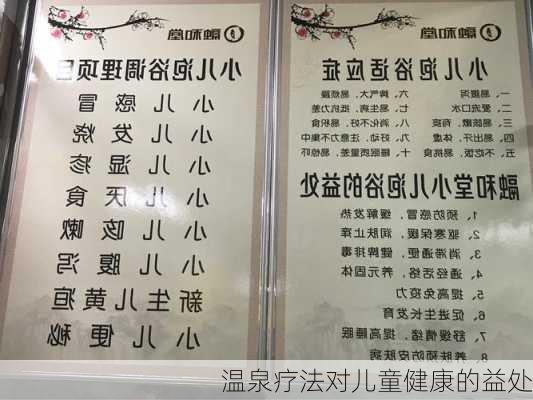 融和堂
小儿泡浴适应症
一、易腹泻 六、脾气大、易烦躁
二、爱流口水 七、易生病、抵抗力差
三、易咳嗽、有痰 八、消化不好、易积食
四、易出汗、体虚 九、好动、注意力不集中
五、不吃饭、易挑食 十、睡眠质量差、易惊吓
融和堂小儿泡浴的益处
1、预防感冒，缓解发热
2、驱寒保暖，润肤止痒
3、消滞通便，健脾排毒
4、通经活络，养元固体
5、提高免疫力
6、促进生长发育
7、舒缓情绪，提高睡眠
8、养肤预防皮肤病
融和堂
小儿泡浴调理项目
小儿感冒
小儿发烧
小儿湿疹
小儿厌食
小儿咳嗽
小儿腹泻
新生儿黄疸
小儿便秘
温泉疗法对儿童健康的益处